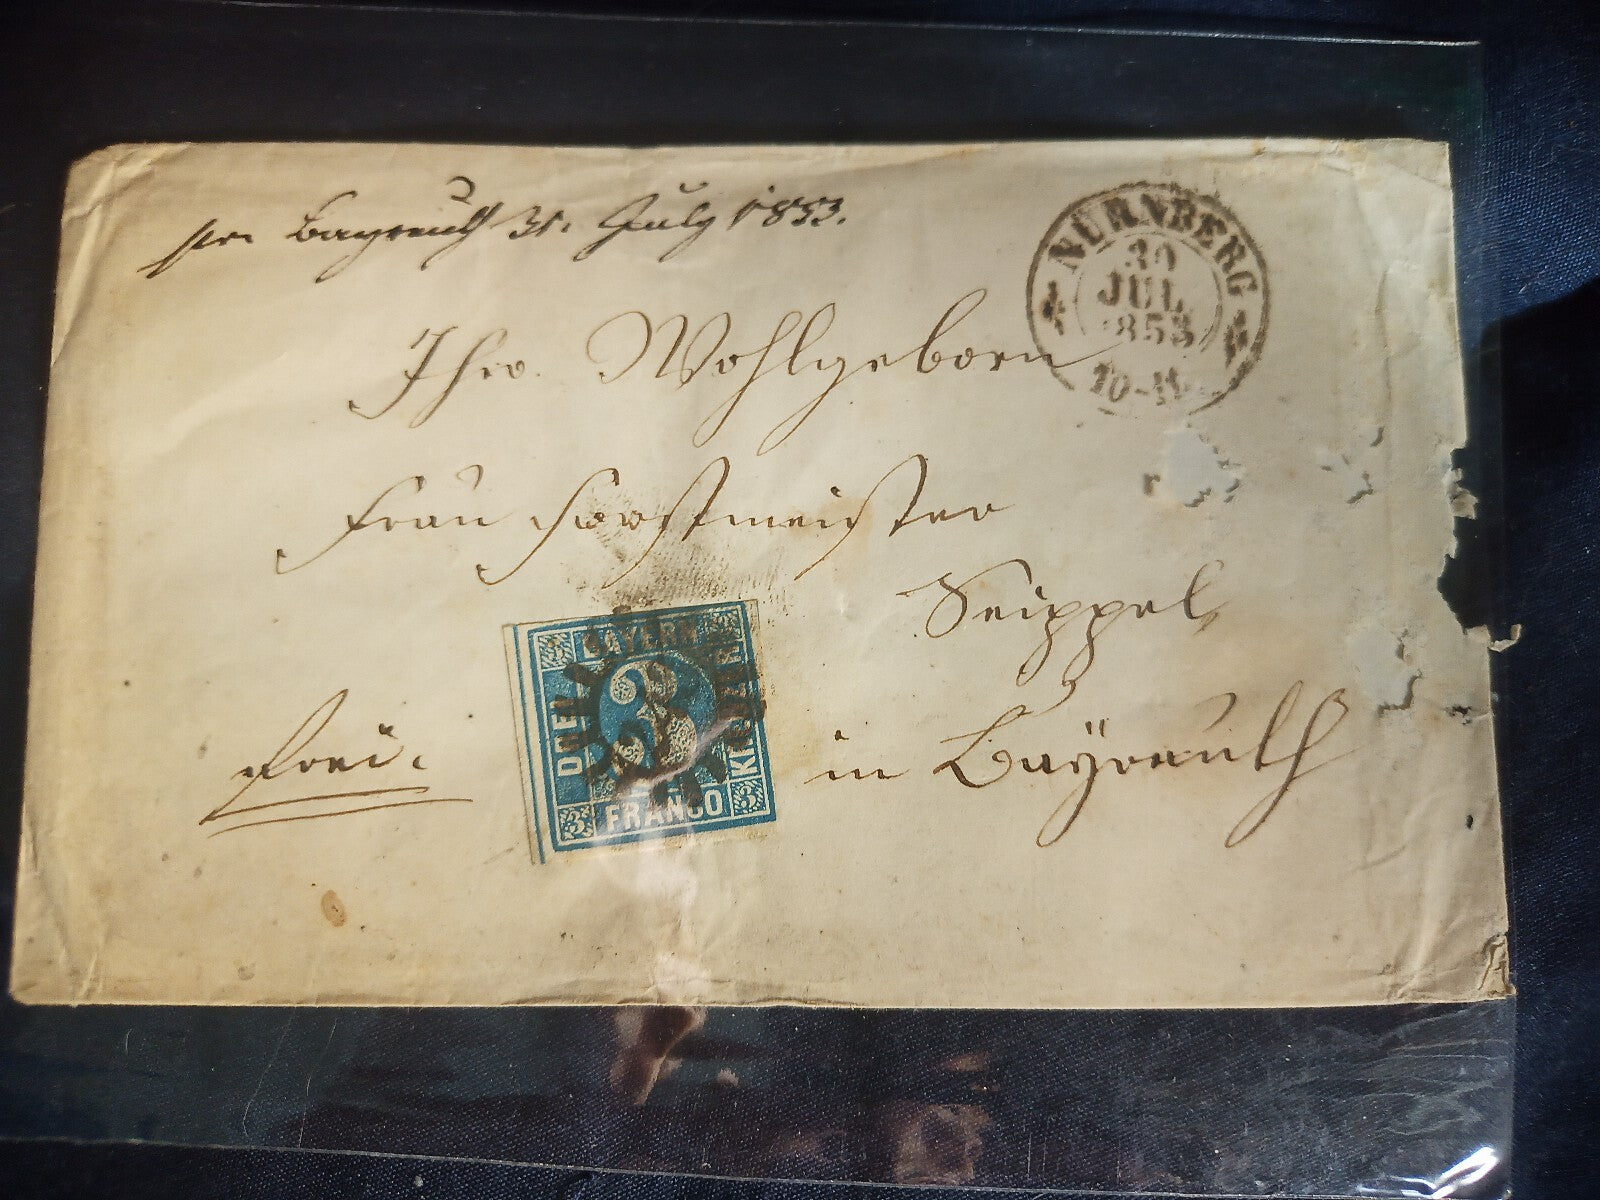 Bayreuth 31. July 1853.
NÜRNBERG
30
JUL
1853
10-11
Ihro. Wohlgeboren
Frau Forstmeister
Seippel
Frei.
in Bayreuth
BAYERN
DREI
KREUZER
FRANCO
3
3
3